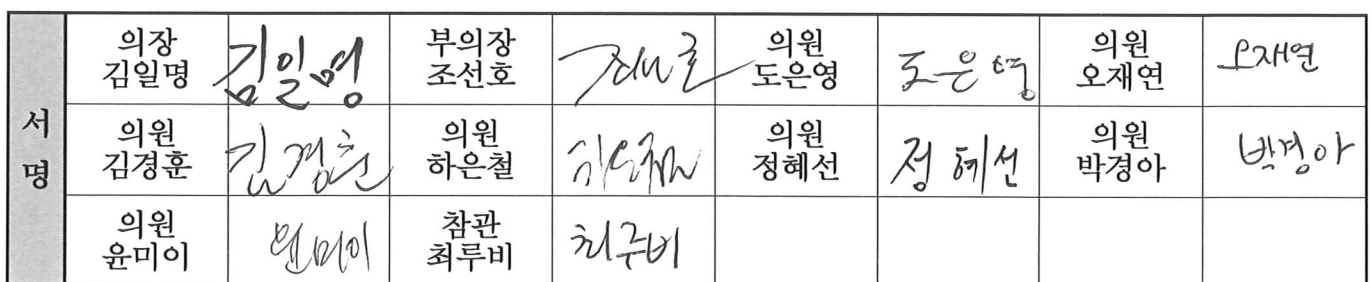 서명
의장
김일명
김일명
부의장
조선호
의원
도은영
도은영
의원
오재연
오재연
의원
김경훈
김경훈
의원
하은철
의원
정혜선
정혜선
의원
박경아
박경아
의원
윤미이
윤미이
참관
최루비
최루비